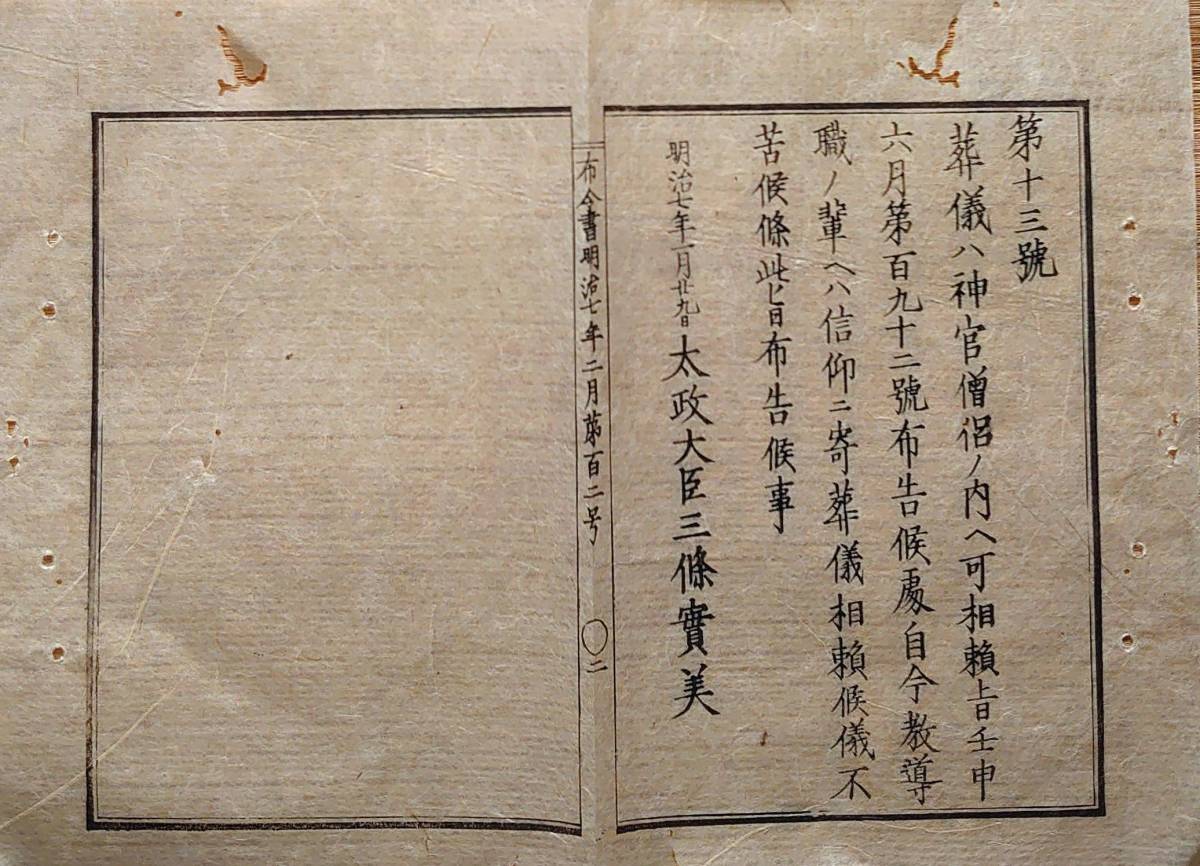 第十三號
葬儀ハ神官僧侶ノ内ヘ可相賴旨壬申
六月第百九十二號布告候處自今教導
職ノ輩ヘハ信仰ニ寄葬儀相賴候儀不
苦候條此旨布告候事
明治七年一月廿九日 太政大臣三條實美
布令書明治七年二月第百二号 〇二